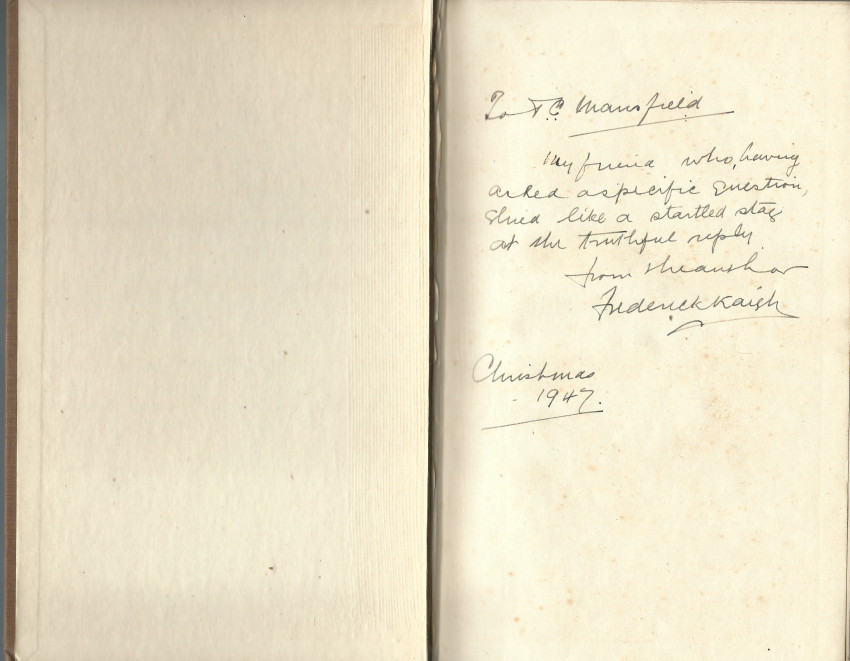 To T.C. Mansfield
My friend who, having
asked a specific question,
shied like a startled stag
at the truthful reply
from the author
Frederick Kaigh
Christmas
1947.